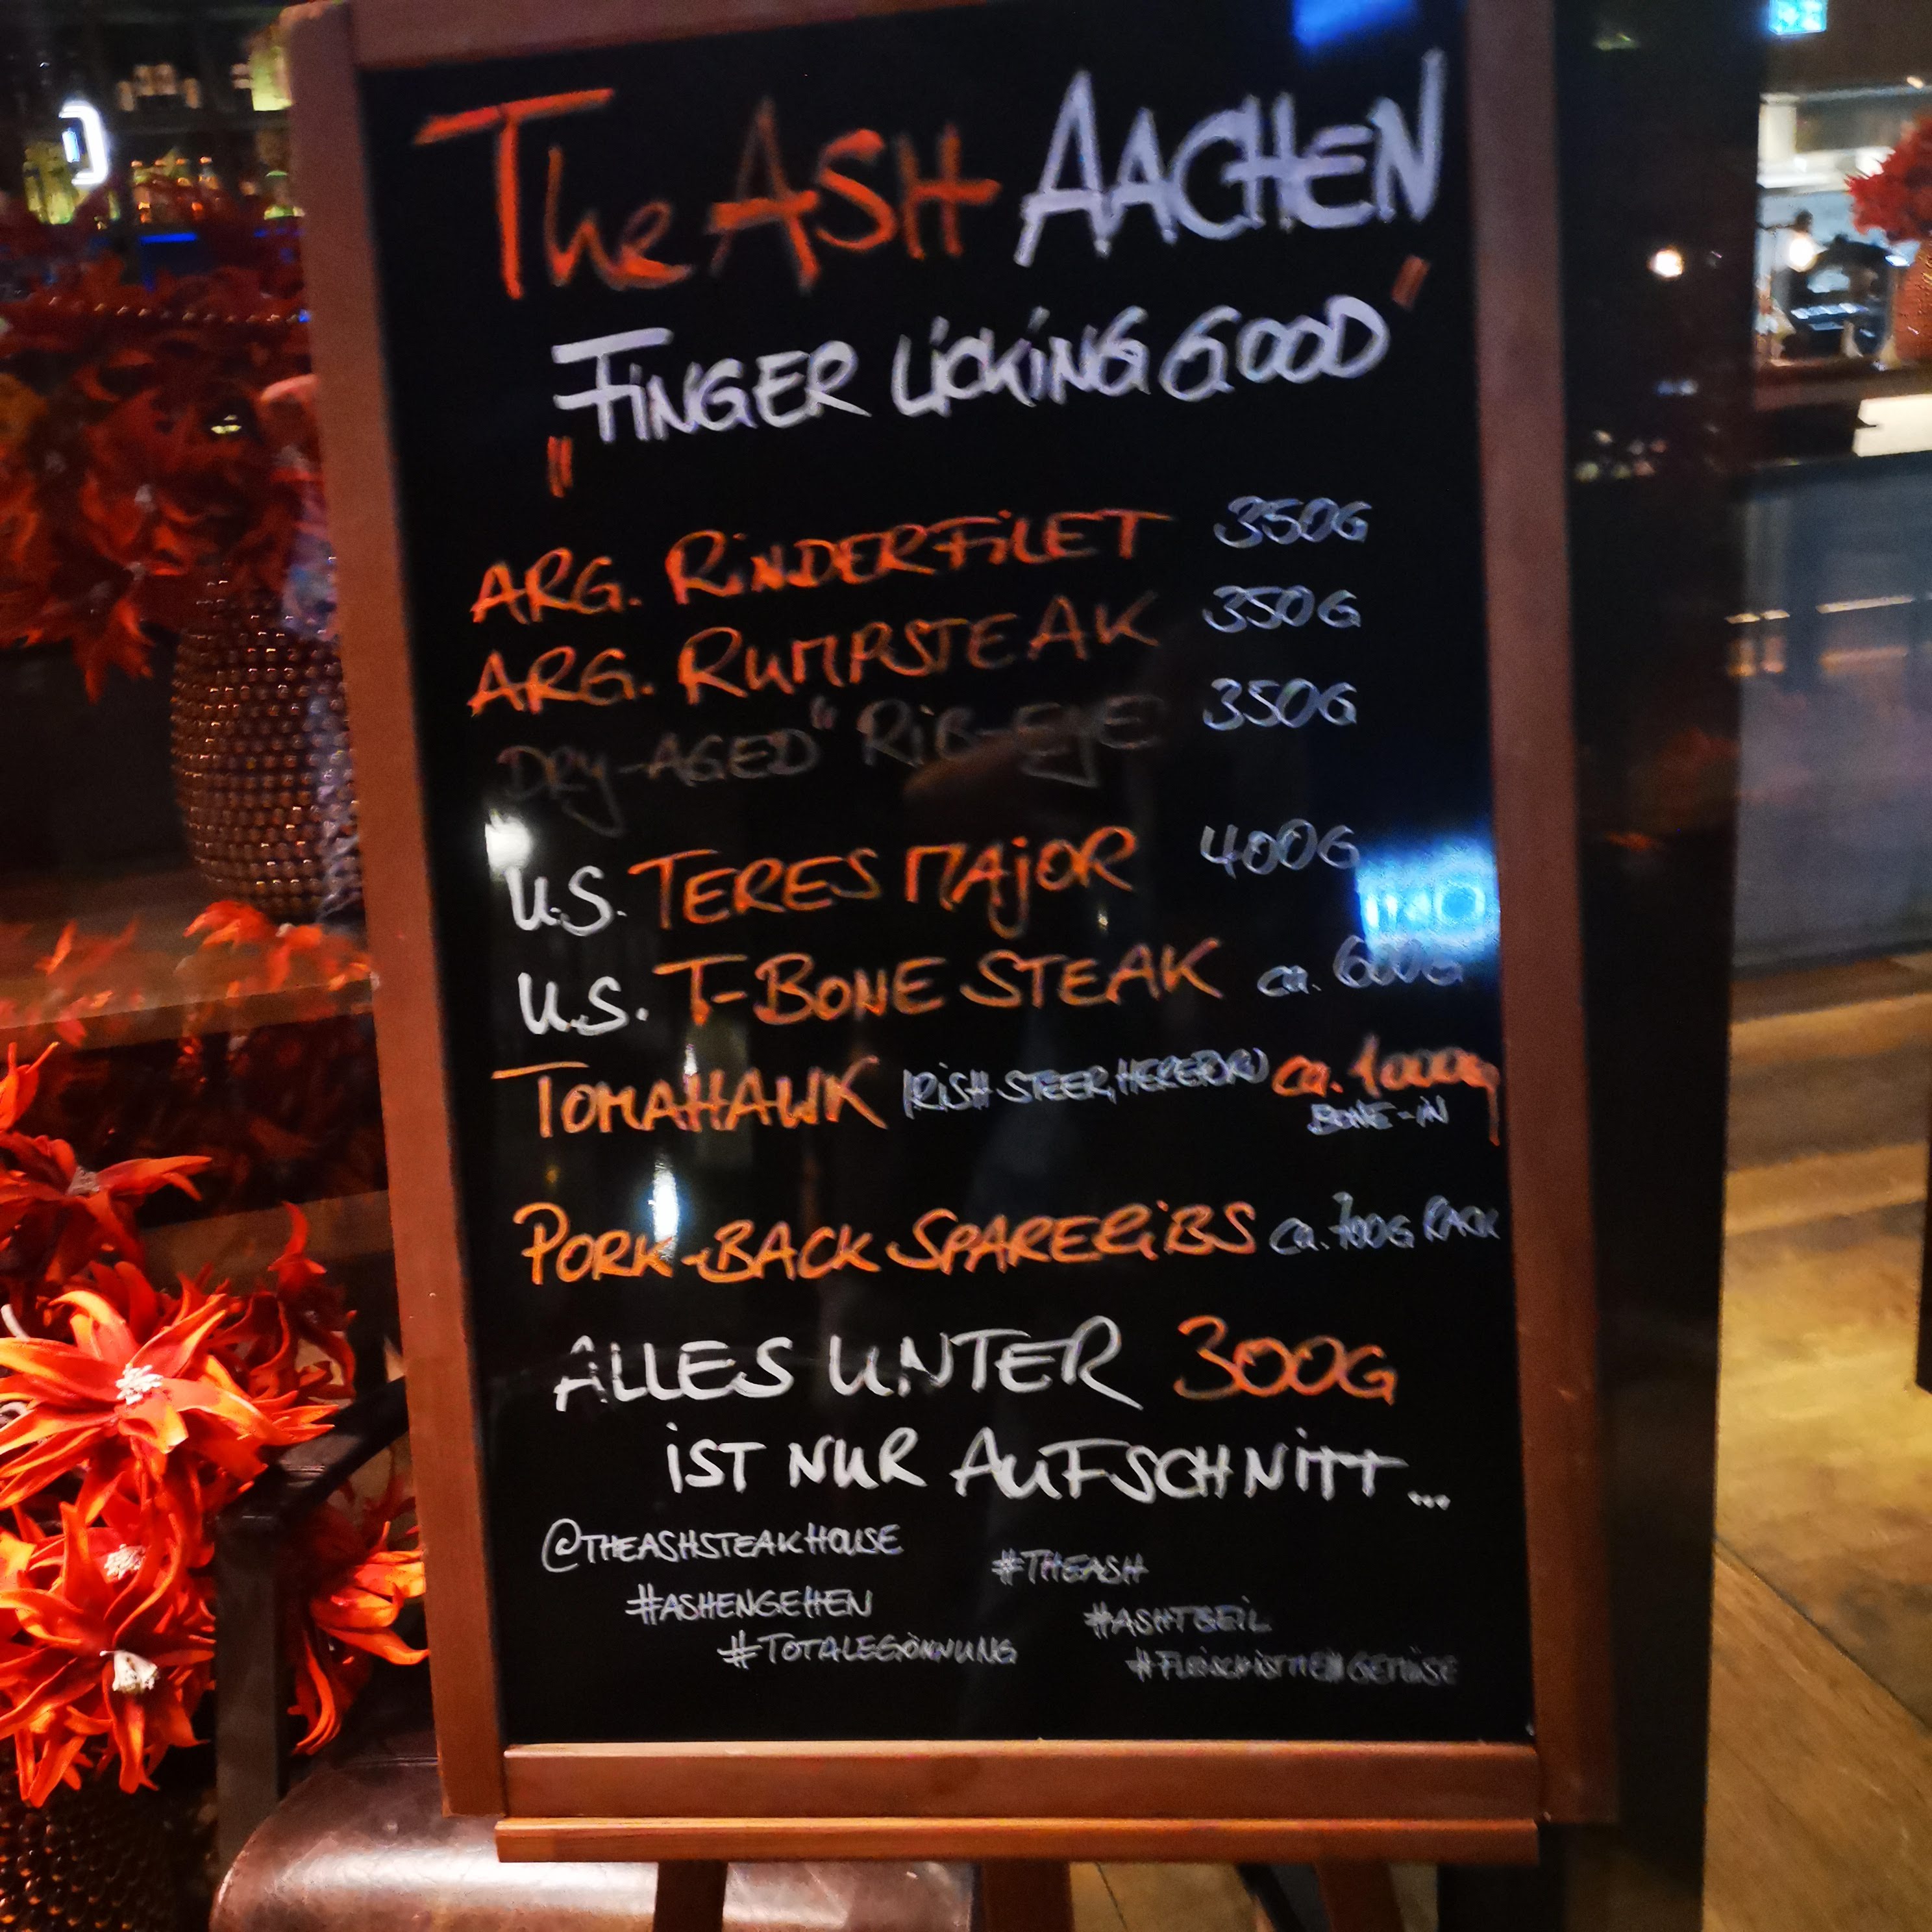 The ASH AACHEN
"FINGER LICKING GOOD"
ARG. RINDERFILET 350G
ARG. RUMPSTEAK 350G
DRY-AGED" RIB-EYE 350G
U.S. TERES MAJOR 400G
U.S. T-BONE STEAK ca. 600G
TOMAHAWK (IRISH STEER, HEREFORD) ca. 1000g
BONE-IN
PORK-BACK SPARERIBS ca. 700G RACK
ALLES UNTER 300G
IST NUR AUFSCHNITT...
@THEASHSTEAKHOUSE
#THEASH
#ASHENGEHEN
#ASHTGEIL
#TOTALEGÖNNUNG
#FLEISCHISTMEINGEMÜSE